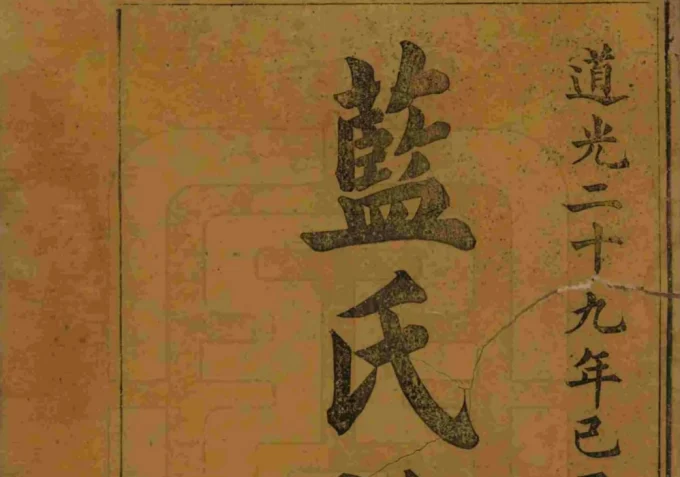 道光二十九年己
藍氏